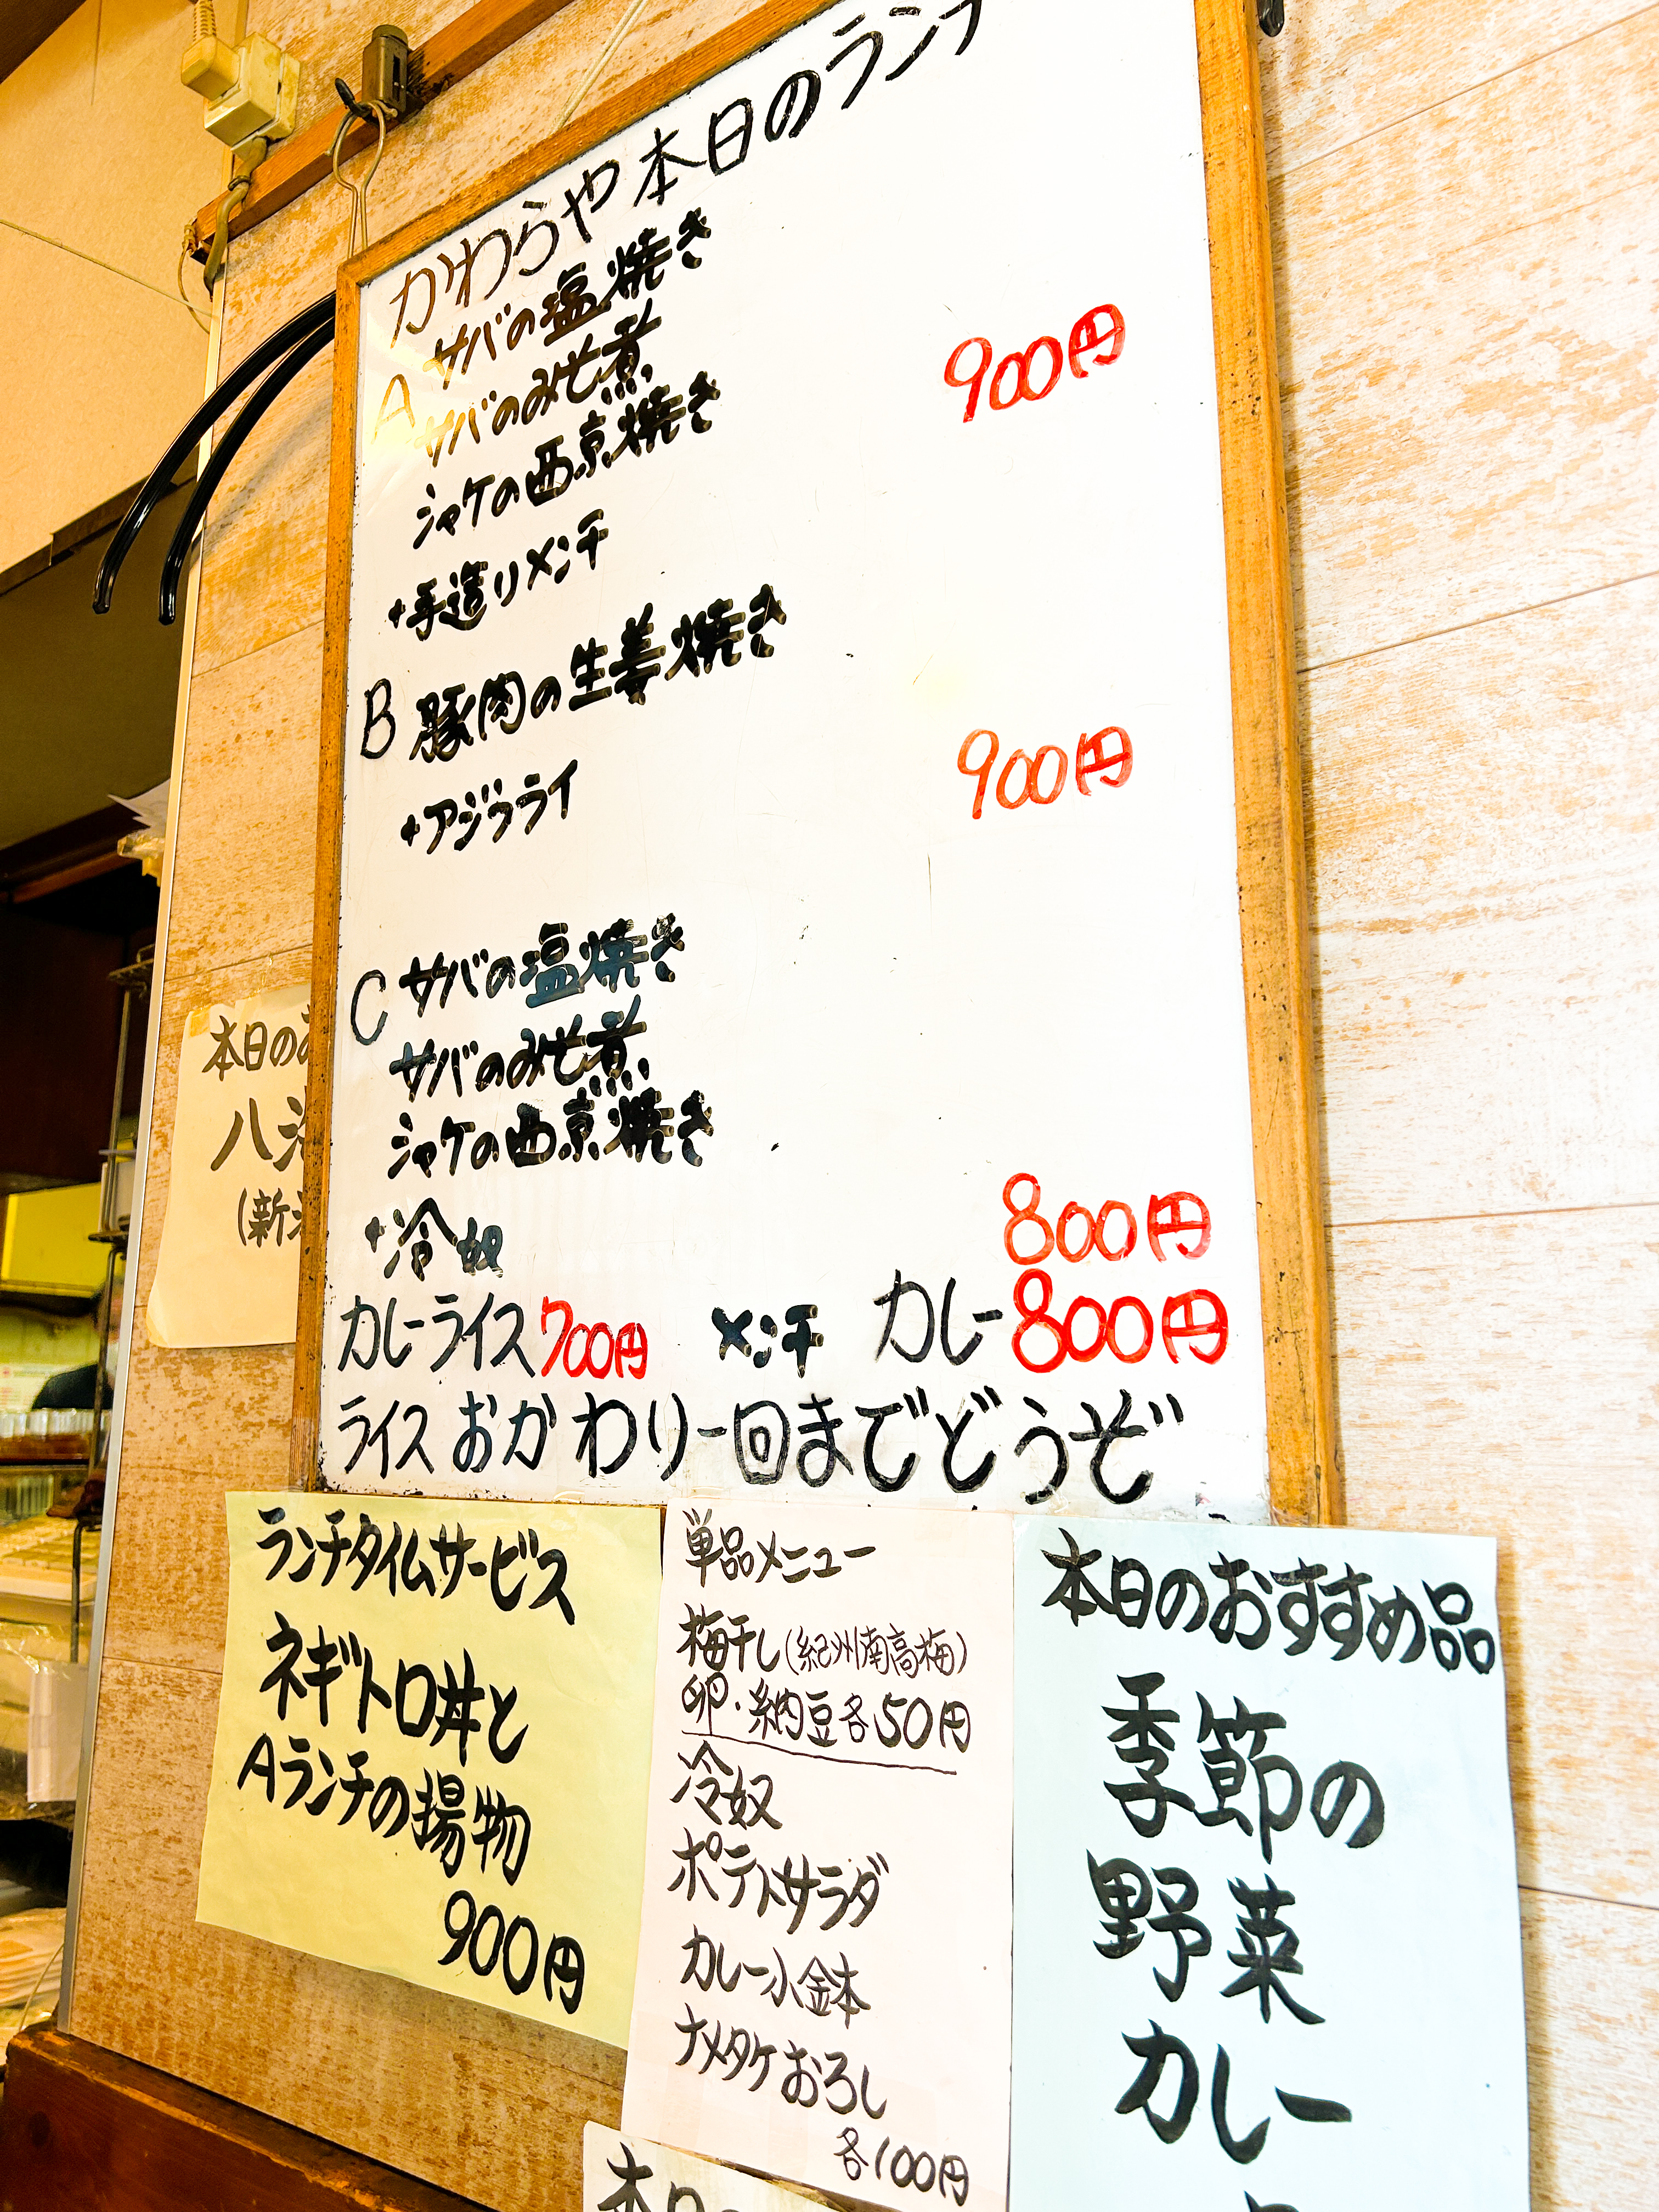 かわらや本日のラン
A サバの塩焼き
サバのみそ煮
シャケの西京焼き
900円
+手造りメンチ
B 豚肉の生姜焼き
+アジフライ
900円
C サバの塩焼き
サバのみそ煮
シャケの西京焼き
+冷奴
800円
カレーライス700円 メンチ カレー800円
ライスおかわり一回までどうぞ
本日の
八
(新
ランチタイムサービス
ネギトロ丼と
Aランチの揚物
900円
単品メニュー
梅干し(紀州南高梅)
卵・納豆各50円
冷奴
ポテトサラダ
カレー小鉢
ナメタケおろし
各100円
本日のおすすめ品
季節の
野菜
カレー
本日